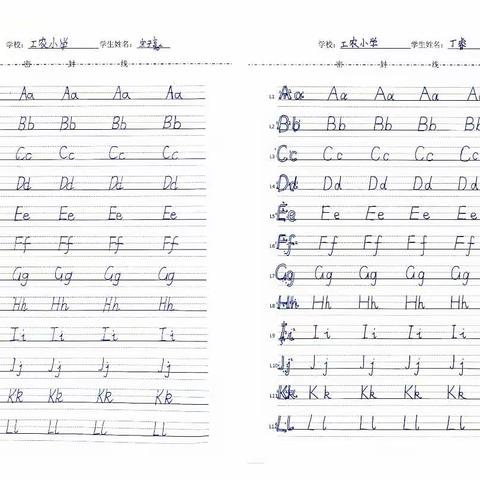 学校: 工农小学 学生姓名:
密 封 线
Aa Aa Aa Aa
Bb Bb Bb Bb
Cc Cc Cc Cc
Dd Dd Dd Dd
Ee Ee Ee Ee
Ff Ff Ff Ff
Gg Gg Gg Gg
Hh Hh Hh Hh
Ii Ii Ii Ii
Jj Jj Jj Jj
Kk Kk Kk Kk
Ll Ll Ll Ll
学校: 工农小学 学生姓名: 丁睿
密 封 线
L1 Aa Aa Aa Aa Aa
L2 Bb Bb Bb Bb Bb
L3 Cc Cc Cc Cc Cc
L4 Dd Dd Dd Dd Dd
L5 Ee Ee Ee Ee Ee
L6 Ff Ff Ff Ff Ff
L7 Gg Gg Gg Gg Gg
L8 Hh Hh Hh Hh Hh
L9 Ii Ii Ii Ii Ii
L10 Jj Jj Jj Jj Jj
L11 Kk Kk Kk Kk Kk
L12 Ll Ll Ll Ll Ll